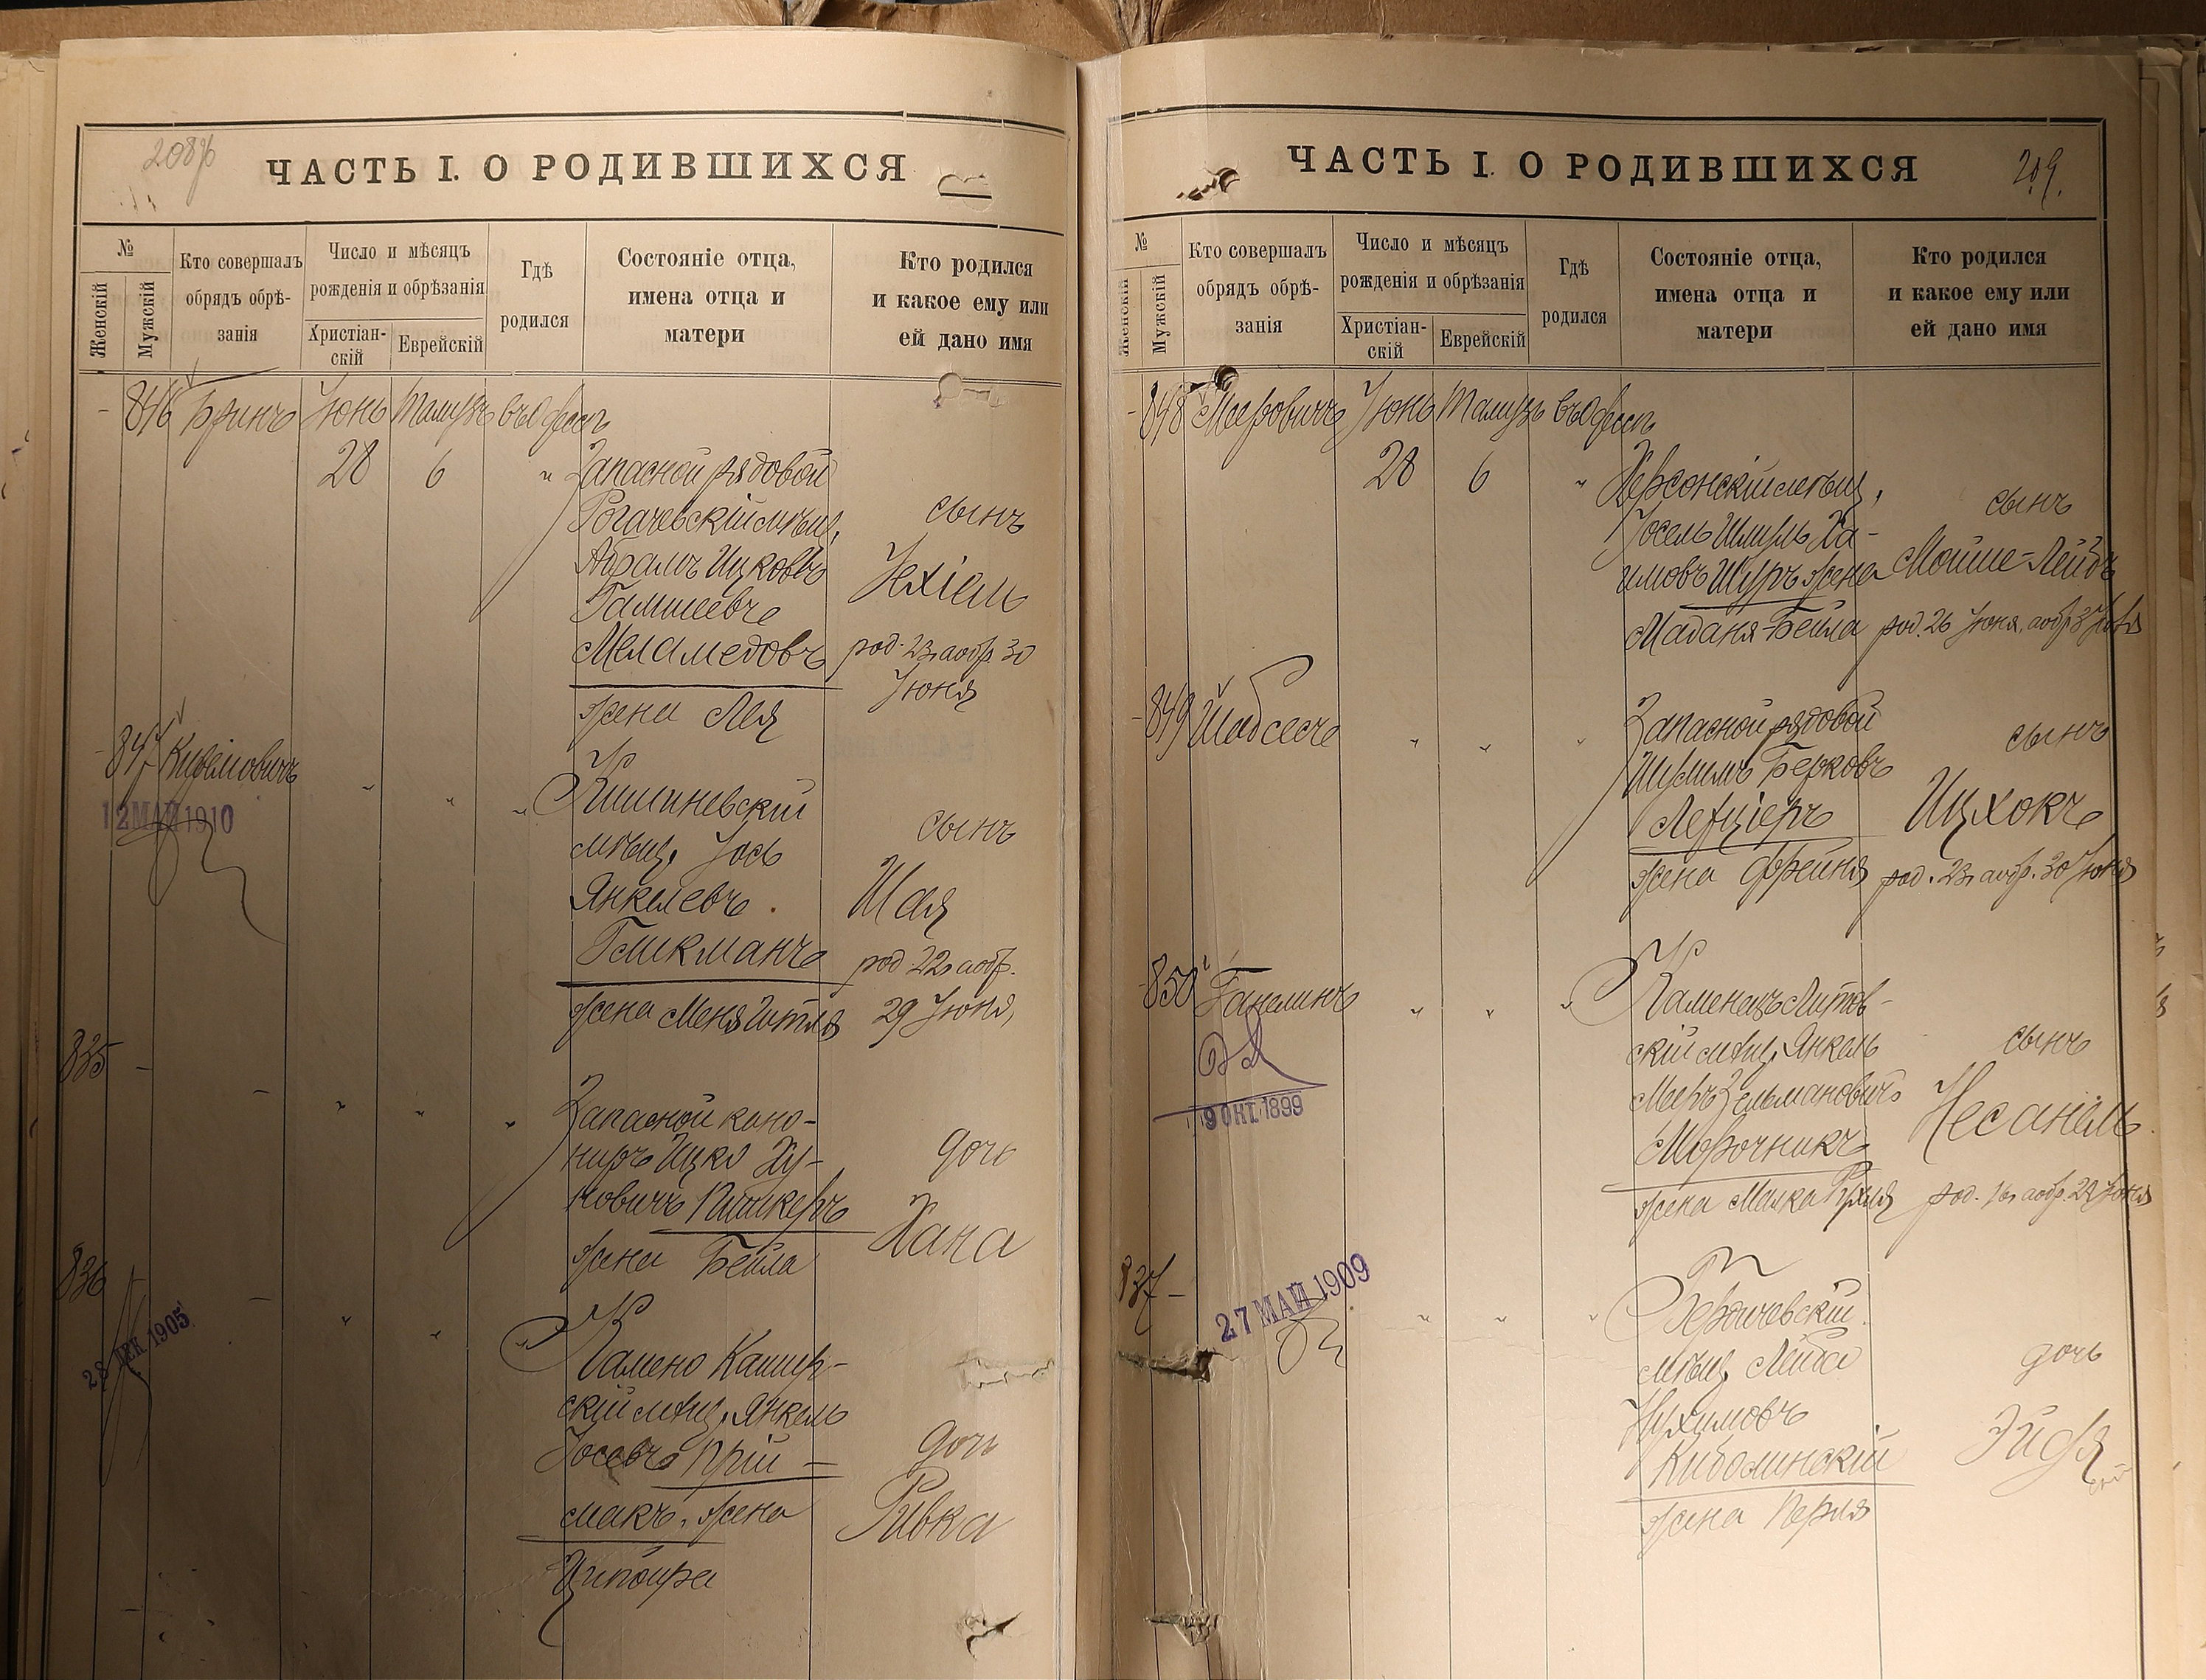 ЧАСТЬ I. О РОДИВШИХСЯ
№
Женскій
Мужскій
Кто совершалъ
обрядъ обрѣ-
занія
Число и мѣсяцъ
рожденія и обрѣзанія
Христіан-
скій
Еврейскій
Гдѣ
родился
Состояніе отца,
имена отца и
матери
Кто родился
и какое ему или
ей дано имя
- 846 Бринъ Іюнь Тамузъ въ Одессѣ
28 6 " Запасной рядовой
Рогачевскій мѣщ.
сынъ
Абрамъ Ицковъ
Іехіель
Меламедовъ
род. 23, а обр. 30
Іюня
жена Лея
- 847
12 МАЙ 1910
" " " Кишиневскій
мѣщ. Іось
сынъ
Янкелевъ
Шая
Гликманъ
род. 22, а обр.
жена Меня Гитля 29 Іюня,
835 - - " " " Запасной кано-
ниръ Ицко Ху-
дочь
новичъ
Хана
жена Бейла
836 - " " " Камено Кашир-
28 ДЕК. 1905
скій мѣщ. Янкель
Іосевъ Прій-
дочь
макъ, жена
Ривка
Ципойра
ЧАСТЬ I. О РОДИВШИХСЯ
209.
№
Женскій
Мужскій
Кто совершалъ
обрядъ обрѣ-
занія
Число и мѣсяцъ
рожденія и обрѣзанія
Христіан-
скій
Еврейскій
Гдѣ
родился
Состояніе отца,
имена отца и
матери
Кто родился
и какое ему или
ей дано имя
- 848 Мееровичъ Іюнь Тамузъ въ Одессѣ
28 6 " Херсонскій мѣщ.
сынъ
Іосель Шмуль Ха-
имовъ Шуръ жена Мойше-Лейбъ
Бейла род. 26 Іюня, а обр. 3 Іюля
- 849 " " " Запасной рядовой
сынъ
Шулимъ Берковъ
Ицхокъ
жена Фрейня род. 23, а обр. 30 Іюня
- 850 Ганелинъ " " " Каменецъ Литов-
скій мѣщ. Янкель
сынъ
19 ОКТ. 1899
Мееръ Зельмановичъ
Несанель
Морочникъ
жена Малка род. 16, а обр. 23 Іюня
837 - " " " Бердичевскій
27 МАЙ 1909
мѣщ. Лейба
дочь
Нухимовъ
Эйдя
жена Перля